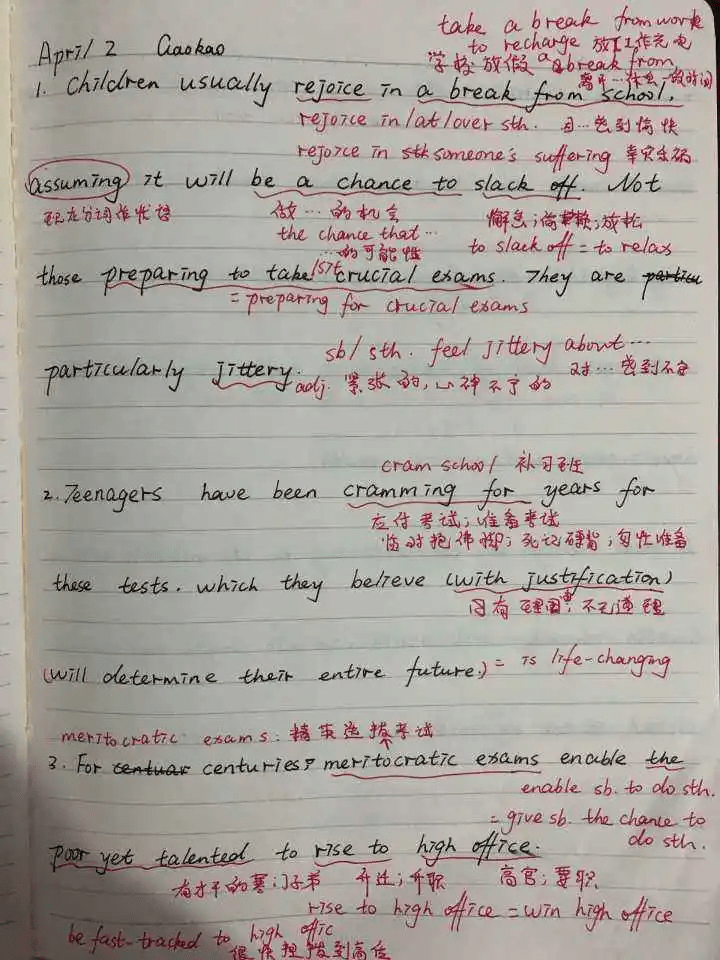 take a break from work
April 2 Gaokao
to recharge 放下工作充电
学校放假 a break from
离开…休息一段时间
1. Children usually rejoice in a break from school,
rejoice in/at/over sth. 因…感到愉快
rejoice in someone's suffering 幸灾乐祸
assuming it will be a chance to slack off. Not
现在分词作状语
做…的机会
懈怠;偷懒;放松
the chance that…
…的可能性
to slack off = to relax
those preparing to take crucial exams. They are
= preparing for crucial exams
sb/sth. feel jittery about…
对…感到不安
particularly jittery.
adj. 紧张的,心神不宁的
cram school 补习班
2. Teenagers have been cramming for years for
应付考试;准备考试
临时抱佛脚;死记硬背;匆忙准备
these tests. which they believe (with justification)
因有理由;不无道理
(will determine their entire future.) = is life-changing
meritocratic exams: 精英选拔考试
3. For centuries, meritocratic exams enable the
enable sb. to do sth.
= give sb. the chance to
do sth.
poor yet talented to rise to high office.
有才干的寒门子弟 升迁;升职 高官;要职
rise to high office = win high office
be fast-tracked to high offic
很快提拔到高位